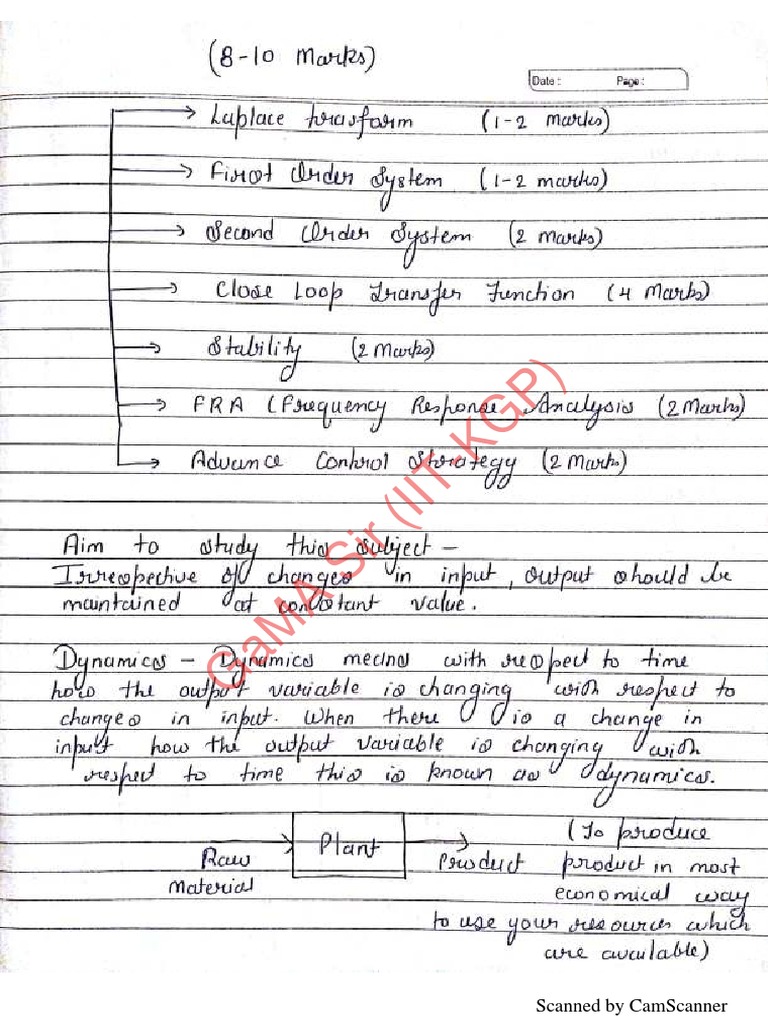 (8-10 Marks)
Date : Page :
Laplace transform (1-2 marks)
First Order System (1-2 marks)
Second Order System (2 marks)
Close Loop Transfer Function (4 Marks)
Stability (2 Marks)
FRA (Frequency Response Analysis (2 Marks)
Advance Control Strategy (2 Marks)
Aim to study this subject -
Irrespective of changes in input, output should be
maintained at constant value.
Dynamics - Dynamics means with respect to time
how the output variable is changing with respect to
changes in input. When there is a change in
input how the output variable is changing with
respect to time this is known as dynamics.
Raw Material
Plant
Product
(To produce
product in most
economical way
to use your resources which
are available)
GaMA Sir (IIT-KGP)
Scanned by CamScanner